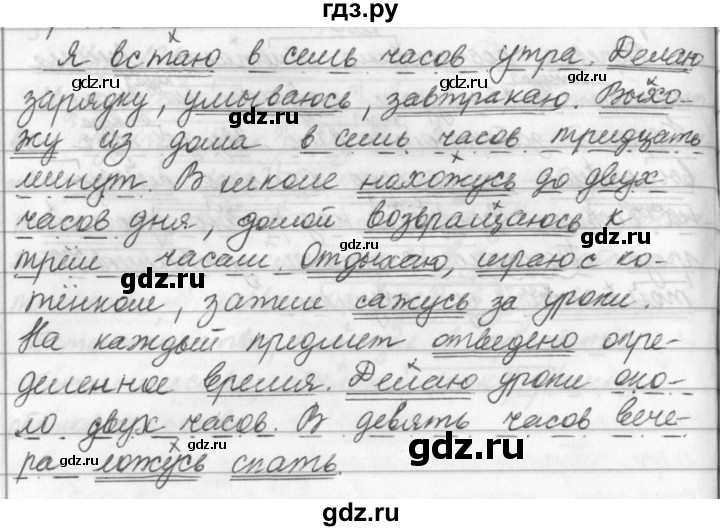 гдз.ру
Я встаю в семь часов утра. Делаю
gdz.ru gdz.ru
зарядку, умываюсь, завтракаю. Выхо-
gdz.ru gdz.ru
жу из дома в семь часов тридцать
минут. В школе нахожусь до двух
часов дня, домой возвращаюсь к
gdz.ru gdz.ru
трём часам. Отдыхаю, играю с ко-
gdz.ru
тёнком, затем сажусь за уроки.
gdz.ru
На каждый предмет отведено опре-
деленное время. Делаю уроки око-
gdz.ru
ло двух часов. В девять часов вече-
gdz.ru
ра ложусь спать.
gdz.ru
gdz.ru